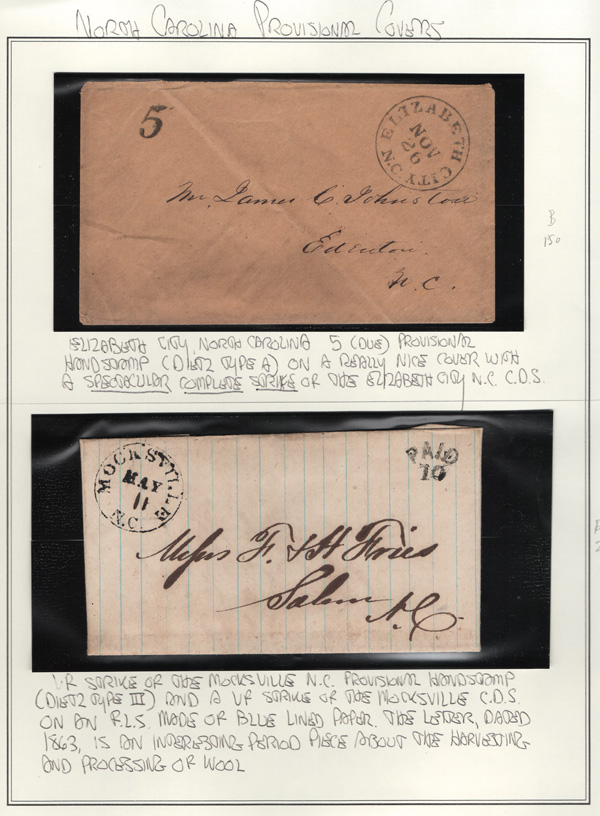 NORTH CAROLINA PROVISIONAL COVERS
5
ELIZABETH CITY N.C.
NOV
26
Mr. James C. Johnston
Edenton.
N.C.
B
150
ELIZABETH CITY, NORTH CAROLINA 5 (DUE) PROVISIONAL
HANDSTAMP (DIETZ TYPE A) ON A REALLY NICE COVER WITH
A SPECTACULAR COMPLETE STRIKE OF THE ELIZABETH CITY N.C. C.D.S.
MOCKSVILLE
MAY
11
N.C.
PAID
10
Messrs F. & H Fries
Salem
N.C.
STRIKE OF THE MOCKSVILLE N.C. PROVISIONAL HANDSTAMP
(DIETZ TYPE III) AND A VF STRIKE OF THE MOCKSVILLE C.D.S.
ON AN F.L.S. MADE OF BLUE LINED PAPER. THE LETTER, DATED
1863, IS AN INTERESTING PERIOD PIECE ABOUT THE HARVESTING
AND PROCESSING OF WOOL